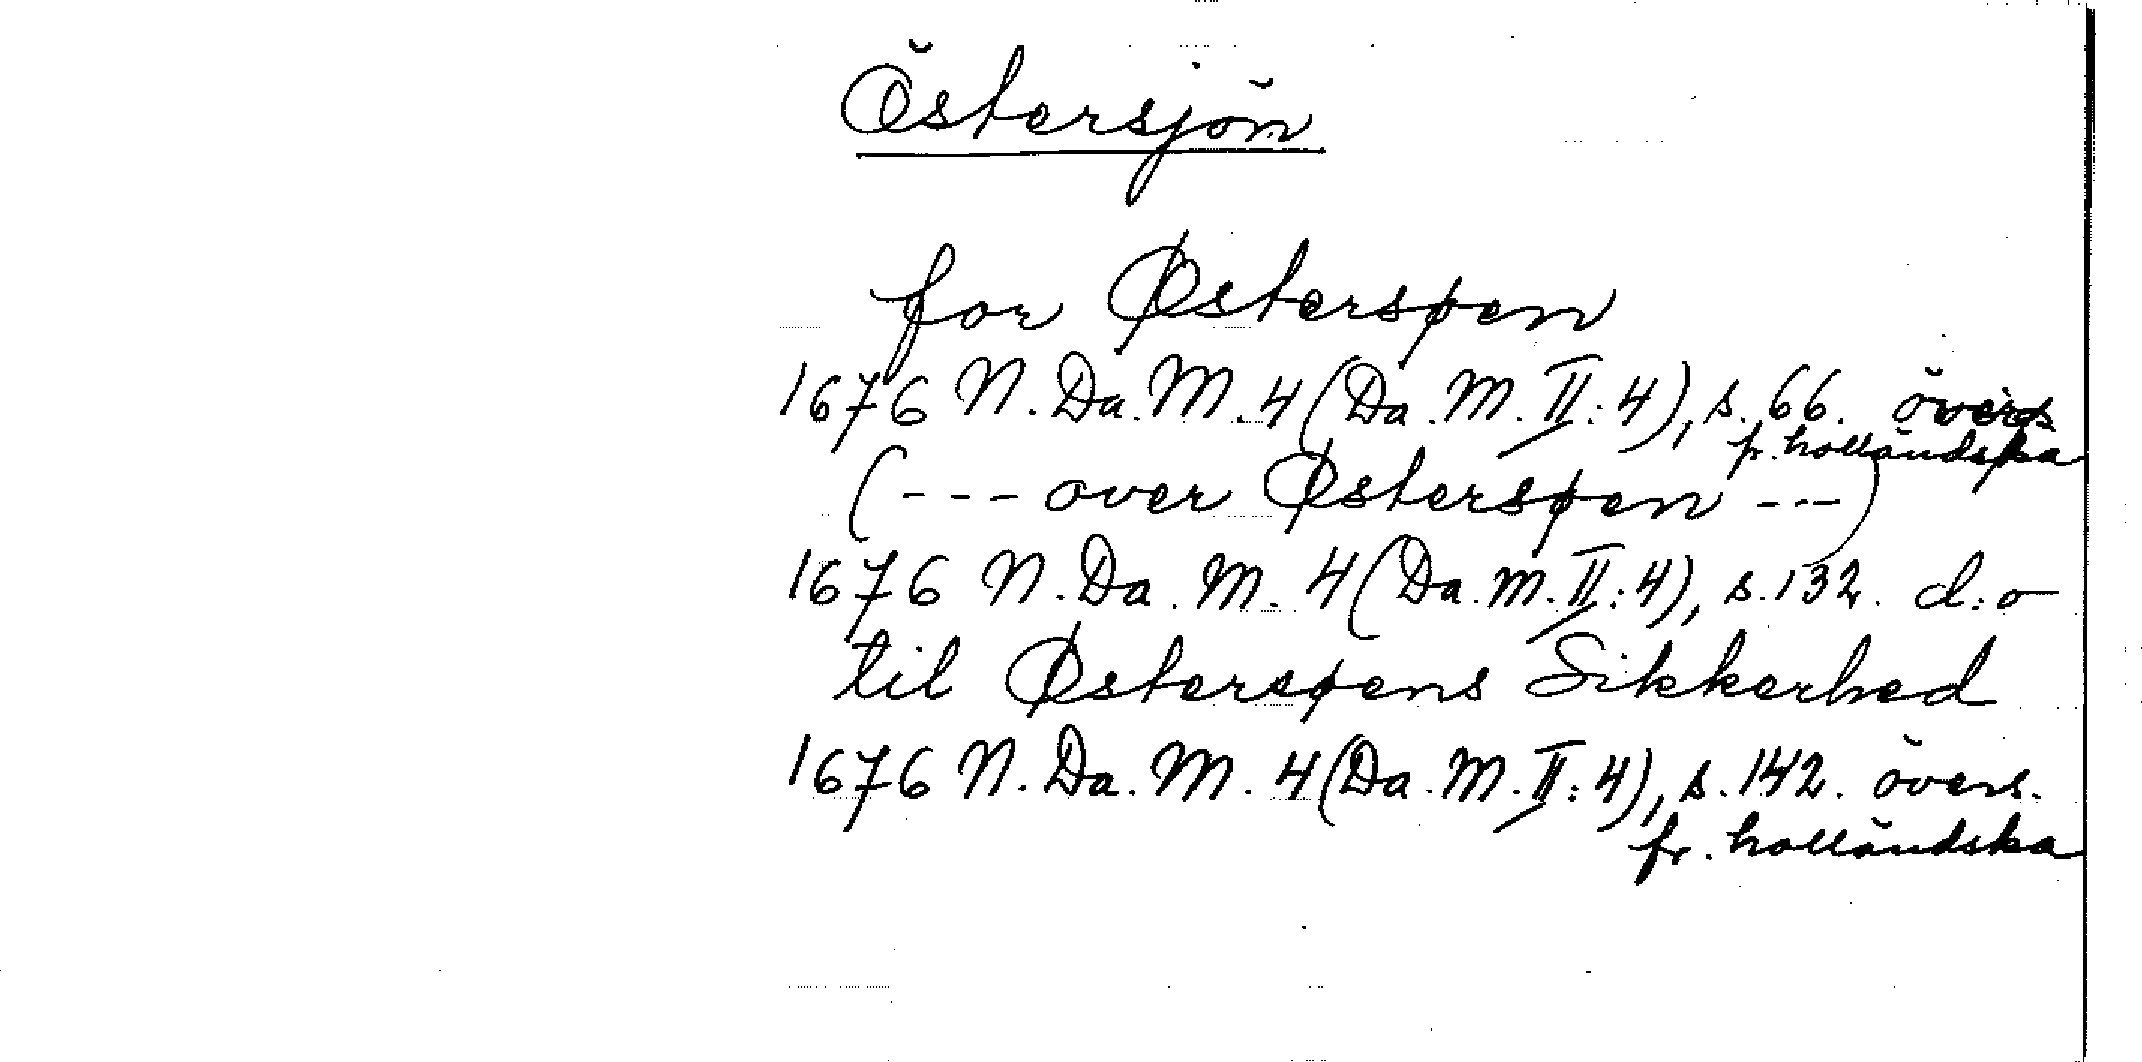 Östersjön
for Østersøen
1676 N. Da. M. 4 (Da. M. II: 4), s. 66. övers
fr. holländska
(--- over Østersøen ---)
1676 N. Da. M. 4 (Da. M. II: 4), s. 132. d:o
til Østersøens Sikkerhed
1676 N. Da. M. 4 (Da. M. II: 4), s. 142. övers.
fr. holländska